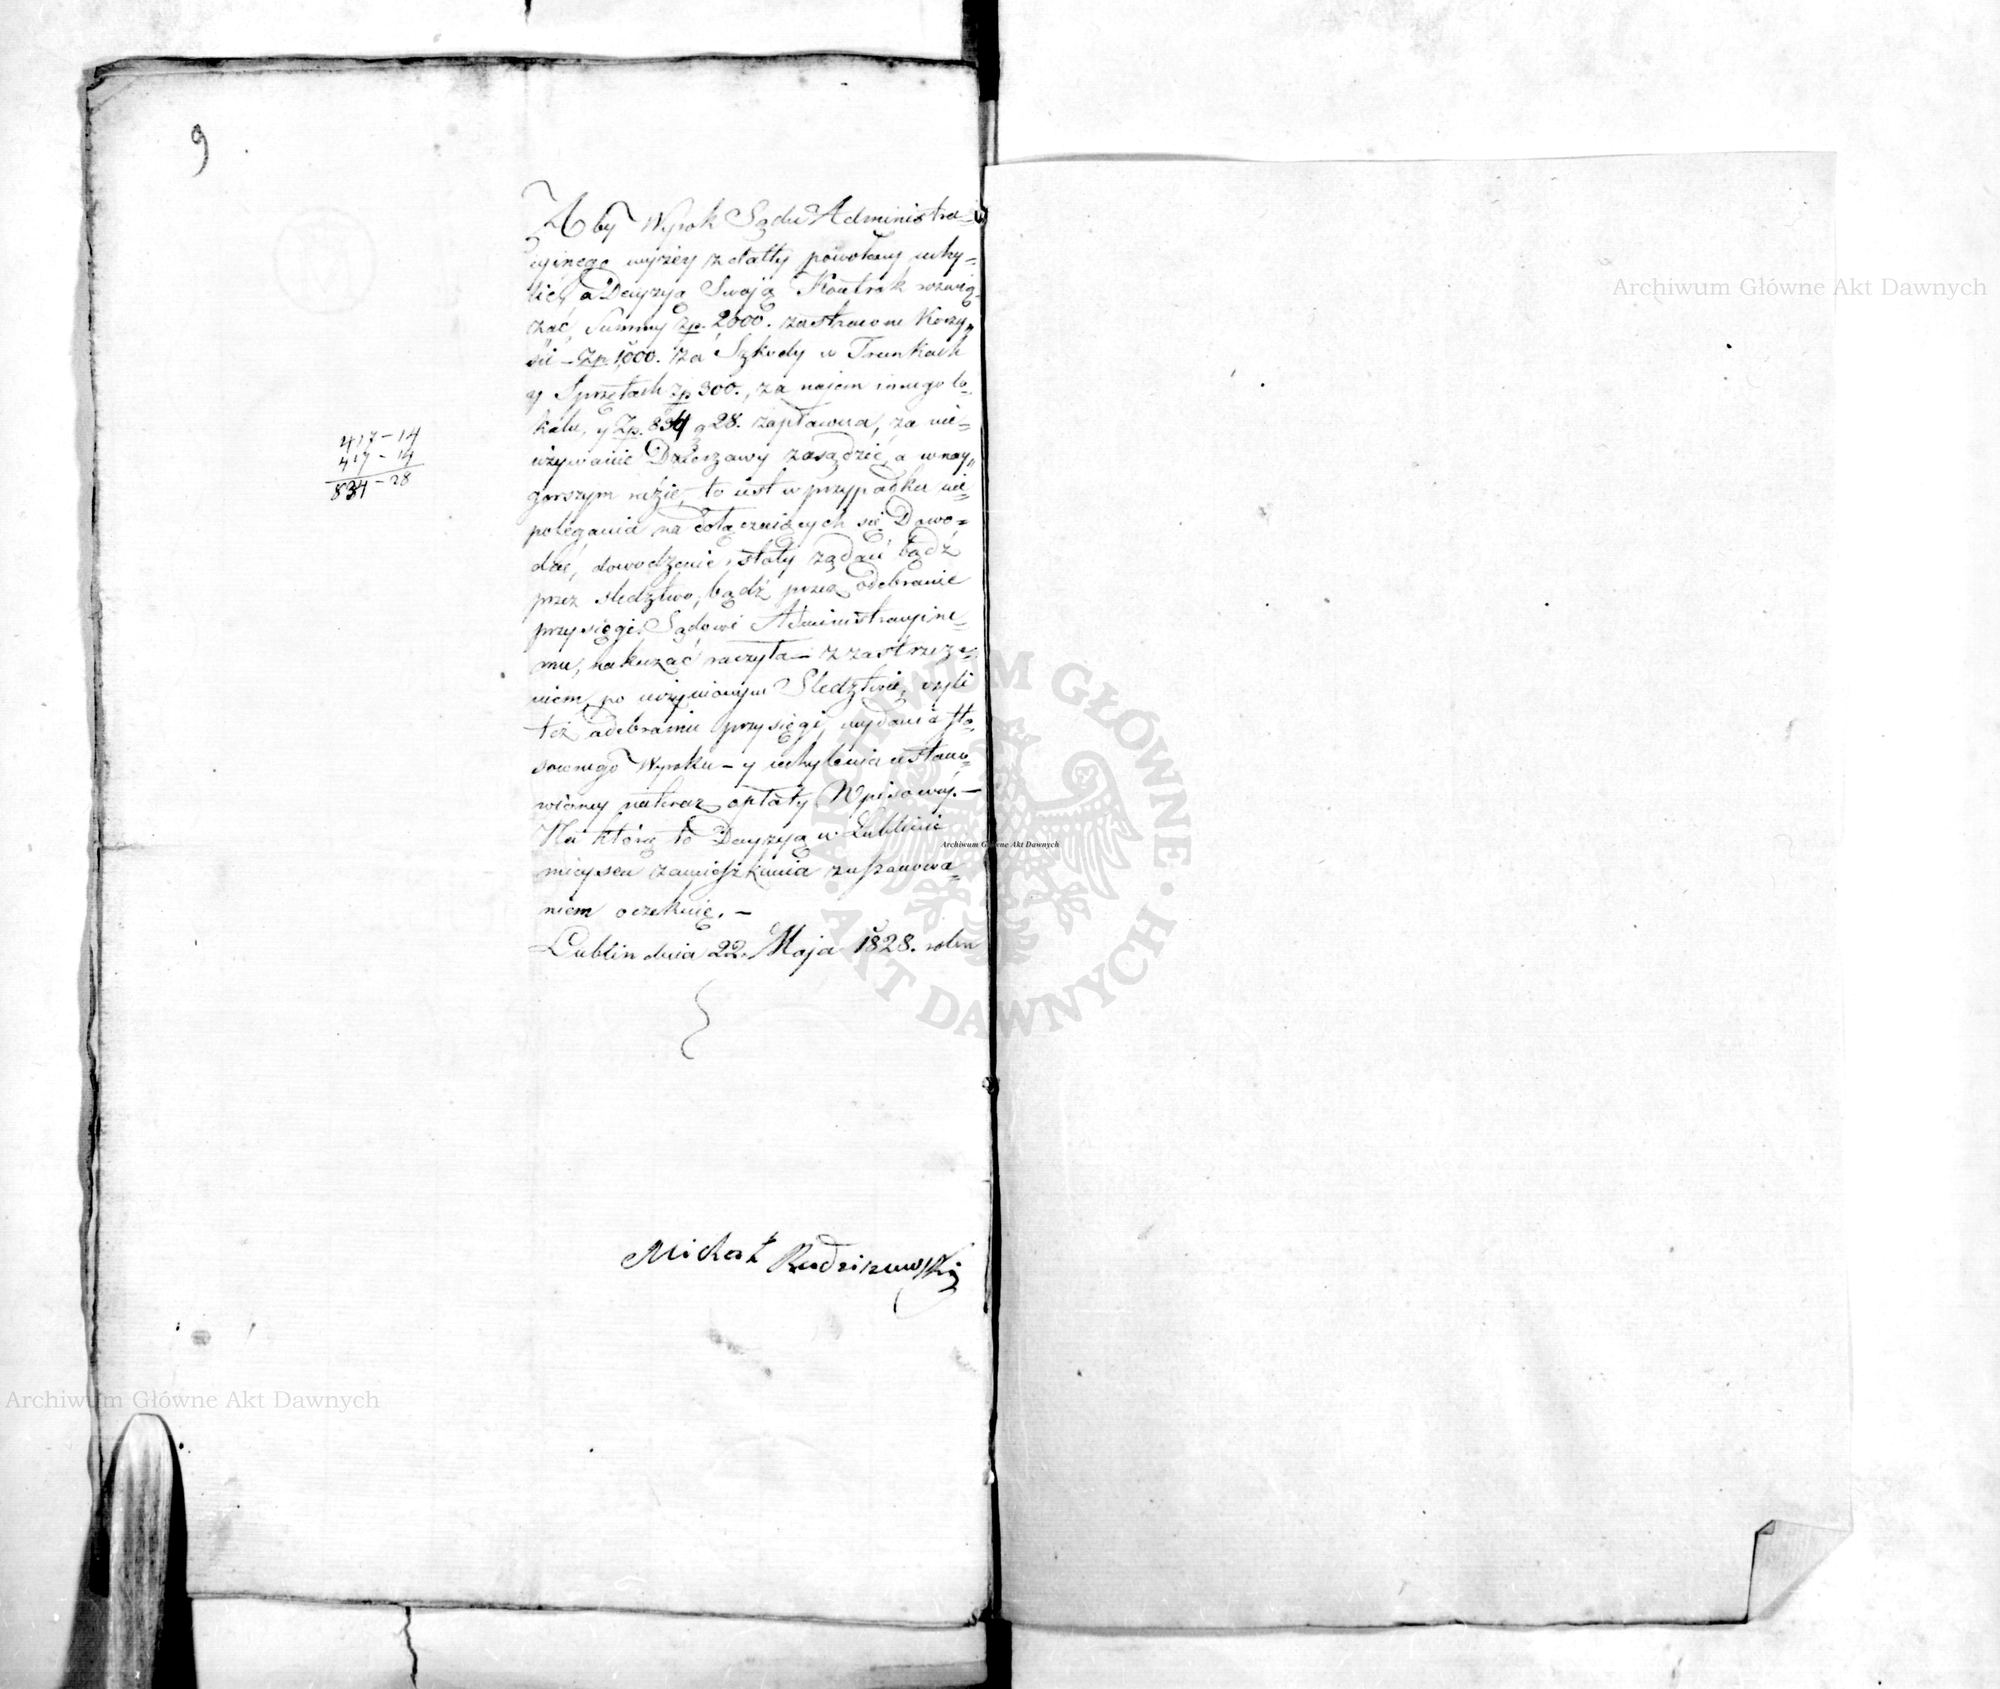 9
Aby Wyrok Sądu Administra=
cyinego wyżey z datty powołany uchy=
lić, a Decyzyą Swoją Kontrakt rozwią=
zać, Summy zp. 2000. zastracone Korzy„
ści – Zp 1,000. za Szkody w Trunkach
y Sprzętach zp 300., za najem innego lo=
kalu, y Zp. 834 g 28. zapła, za nie=
używanie Dzierzawy zasądzić, a w nay„
gorszym razie, to iest w przypadku nie=
polegania na dołączaiących się Dowo=
dać, dowodzenie, bądź
przez sledztwo, bądź przez odebranie
przysięgi Sądowi Administracyine=
mu, nakazać raczyła – z zastrzeże=
niem, po uczynionym Sledztwie, czyli
też odebraniu przysięgi, wydania sto=
sownego Wyroku – y uchylenia ustano=
wioney nateraz opłaty Wpisowey. –
Na którą to Decyzyą w Lublinie
mieyscu zamieszkania z uszanowa=
niem oczekuię. –
Lublin dnia 22. Maja 1828. roku
417 – 14
417 – 14
834 – 28
Michał
Archiwum Główne Akt Dawnych
Archiwum Główne Akt Dawnych
Archiwum Główne Akt Dawnych
ARCHIWUM GŁÓWNE · AKT DAWNYCH ·